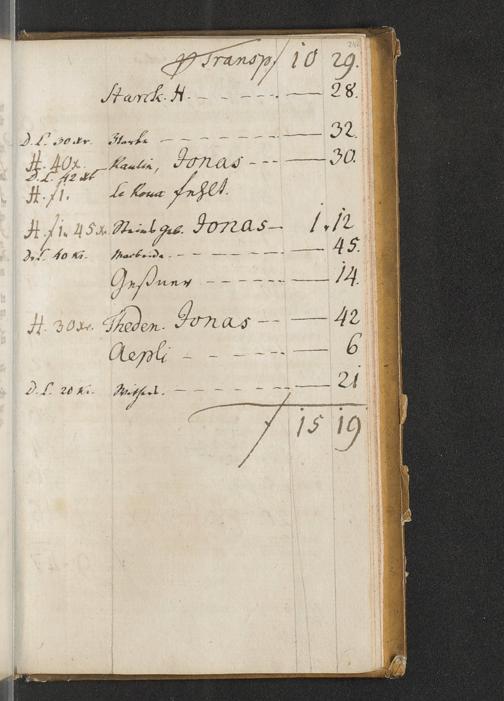 Transp 10 29.
Starck. H. - - - - - 28.
D. L. 30 xr. Starke - - - - - 32.
H. 40 x. Kaulin, Jonas - - - 30.
D. L. 42 xr
H. f 1. Le Roux fehlt.
H. f 1. 45 x. Steinb geb. Jonas - 1. 12
D. L. 40 Kr. - - - - - 45.
Geßner - - - 14.
H. 30 xr. Theden. Jonas - - 42
Aepli - - - - 6
D. L. 20 Kr. - - - - - 21
15 19